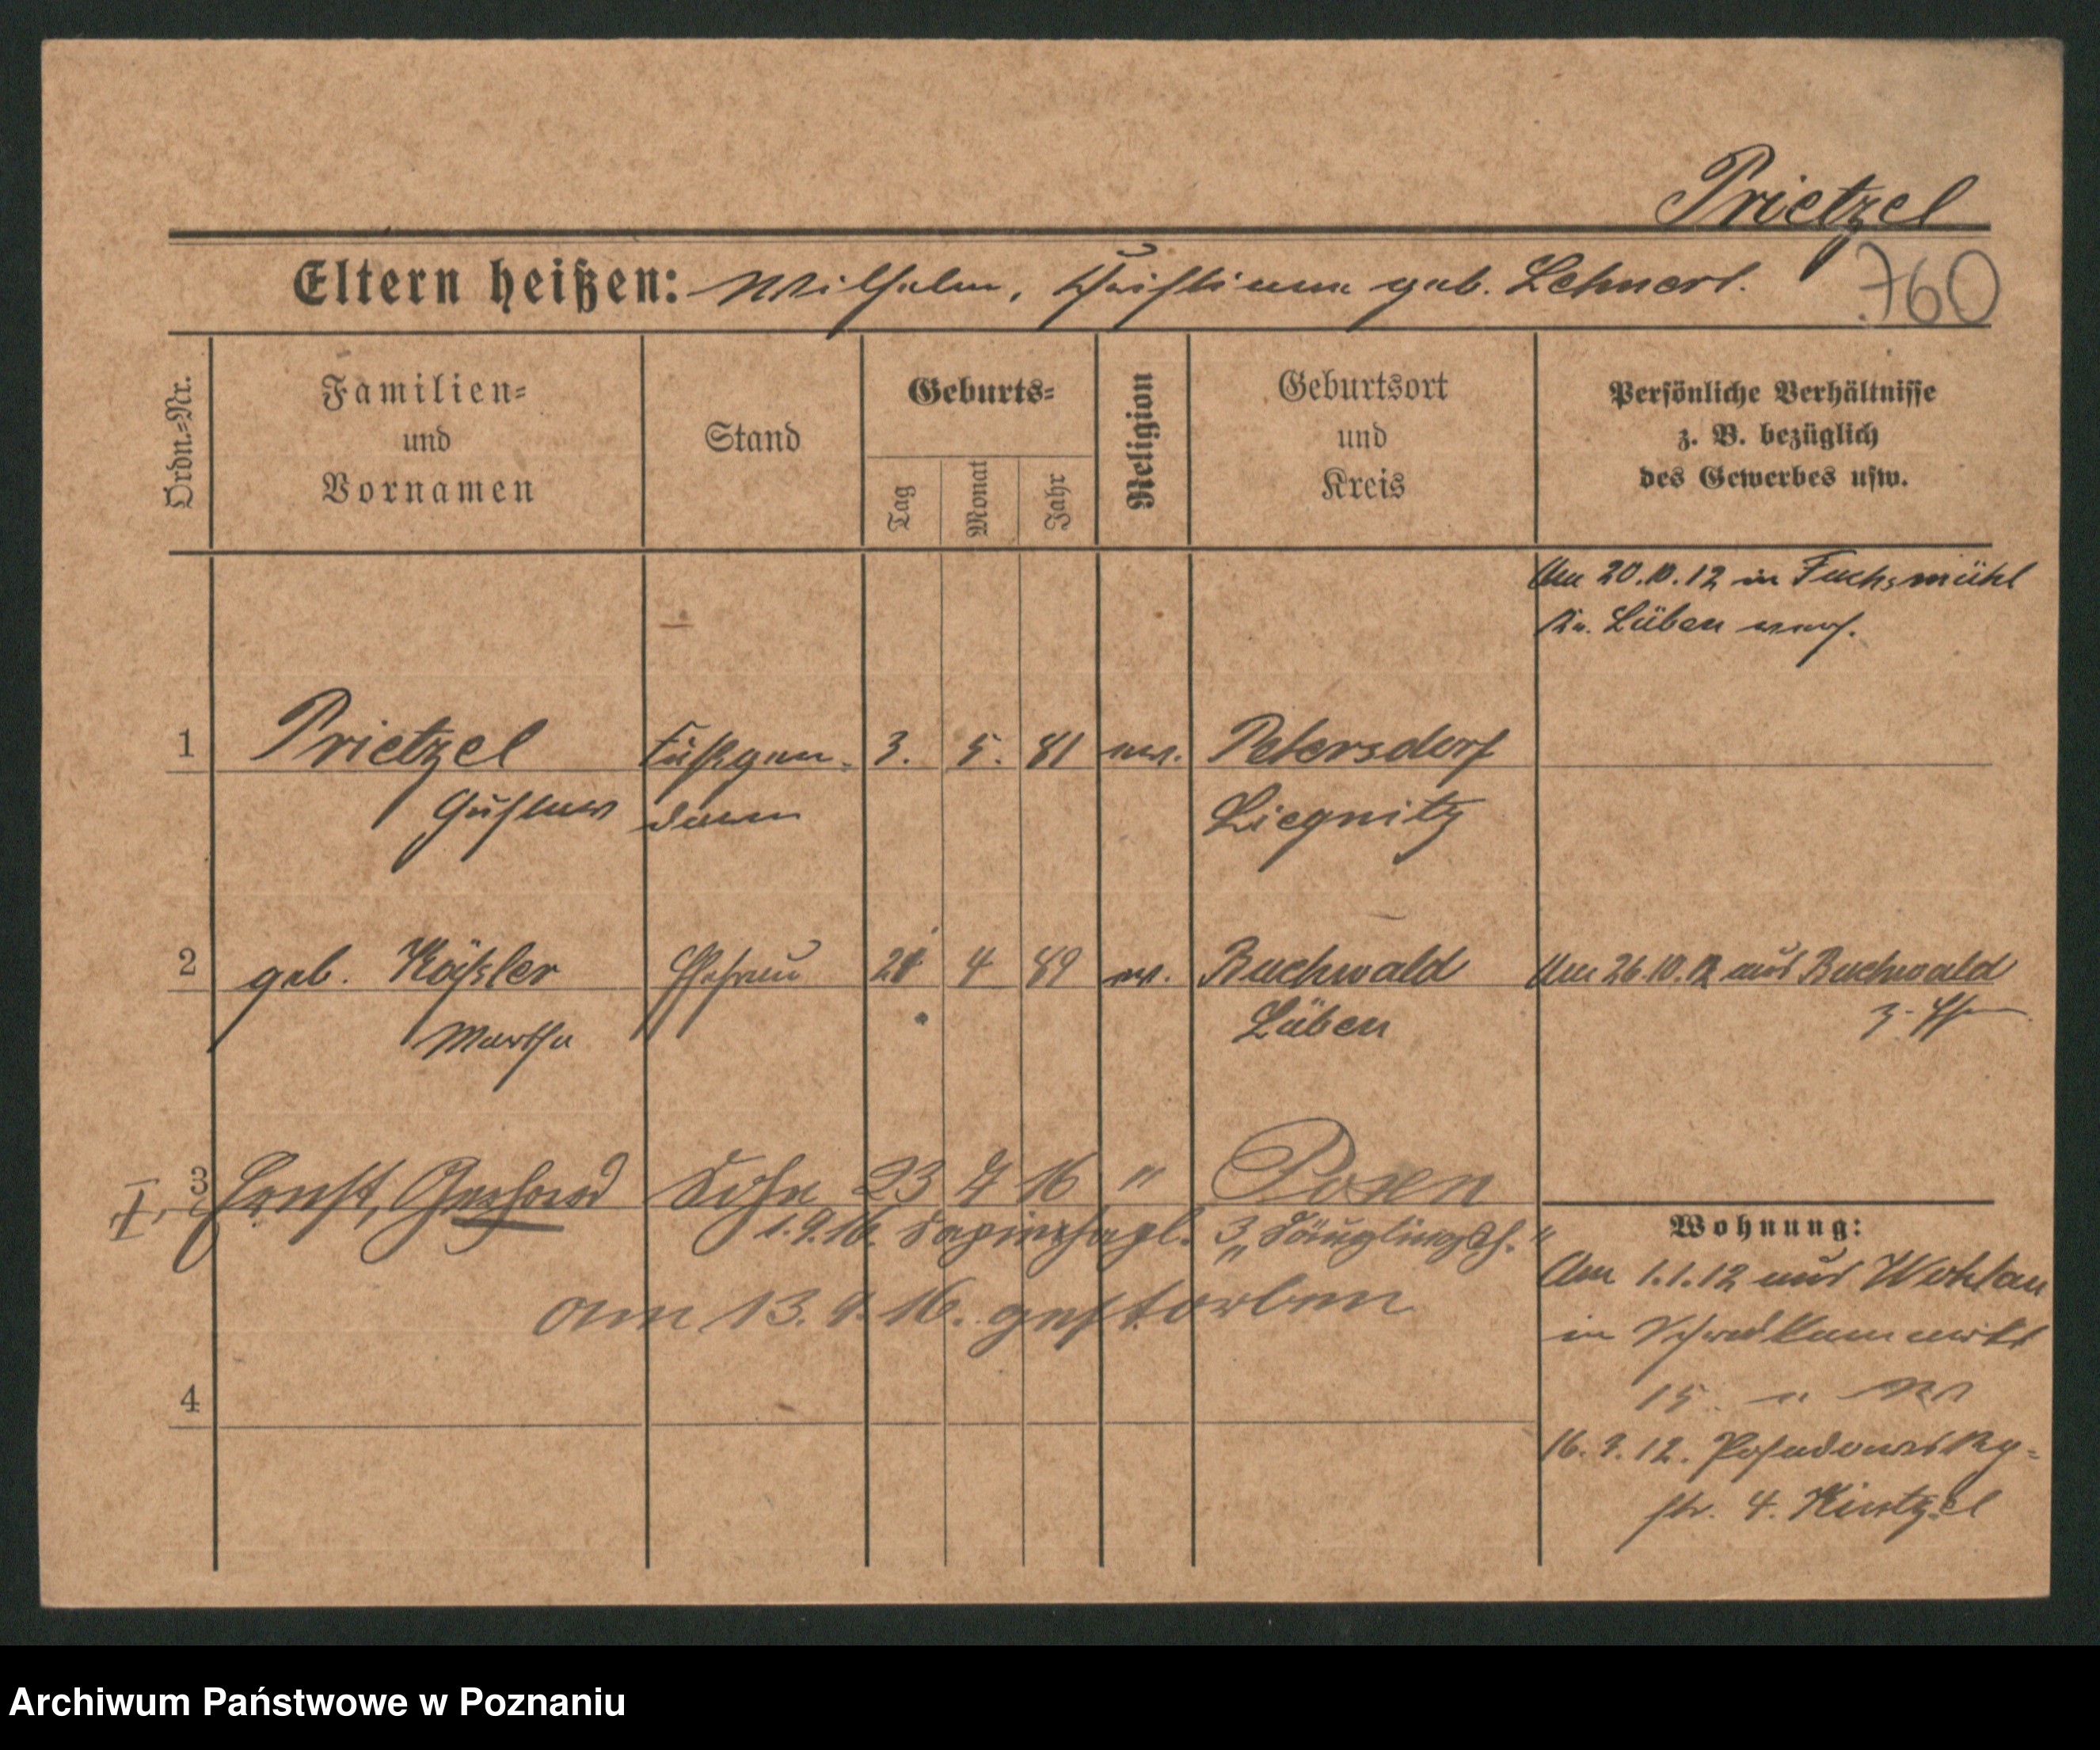 Prietzel
Eltern heißen: Wilhelm, Christiane geb. Lehnert.
760
Ordn.-Nr.
Familien- und Vornamen
Stand
Geburts-
Tag
Monat
Jahr
Religion
Geburtsort und Kreis
Persönliche Verhältnisse
z. B. bezüglich
des Gewerbes usw.
Am 20.10.12 in Fuchsmühl
Kr. Lüben verh.
1 Prietzel Fußgen- 3. 5. 81 ev. Petersdorf
Gustav darm Liegnitz
2 geb. Käßler Ehefrau 21 4 89 ev. Buchwald Am 26.10.12 aus Buchwald
Martha Lüben
3 Ernst, Gerhard Sohn 23 4 16 " Posen
I.
1.9.16. 3 „Säuglingsh."
am 13. 9. 16. gestorben
4
Wohnung:
Am 1.1.12 aus Wohlau
in
15.
16. 3. 12. Posadowsky-
str. 4.
Archiwum Państwowe w Poznaniu